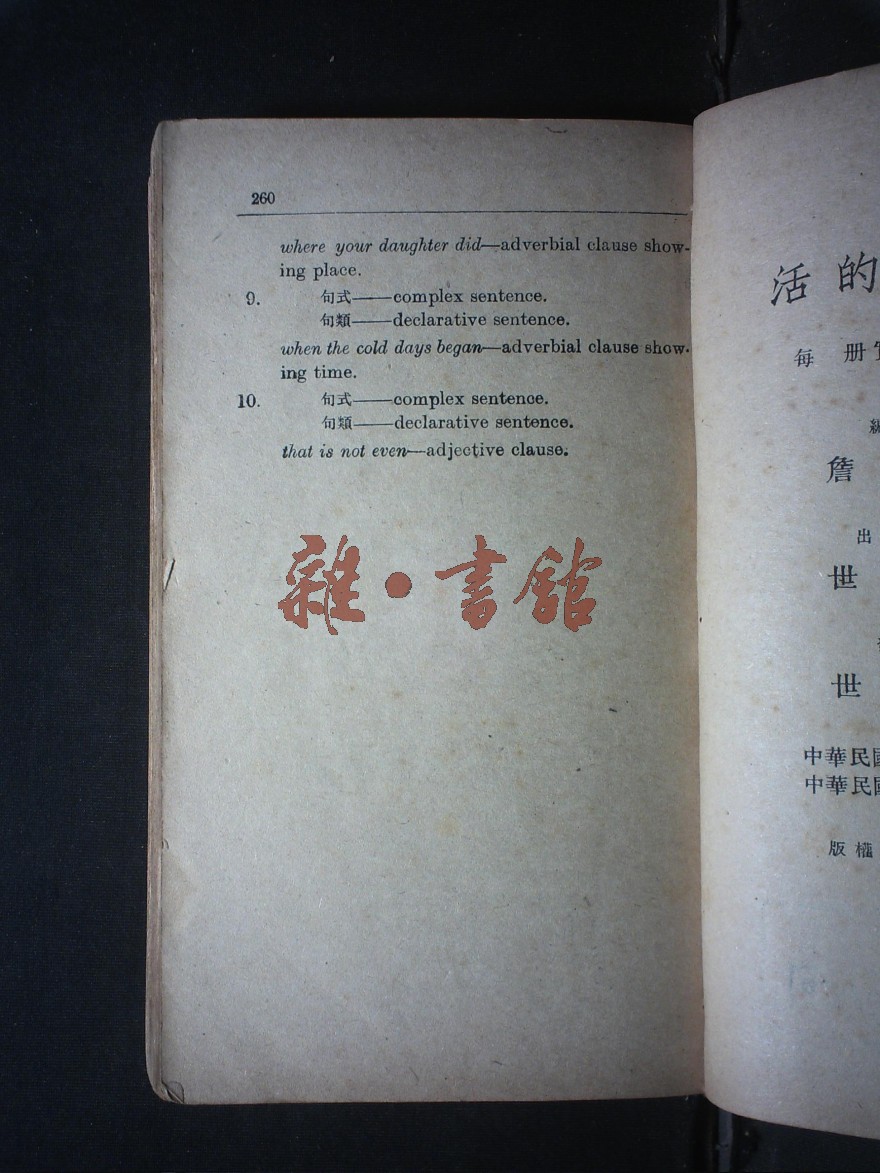 260
where your daughter did—adverbial clause show-
ing place.
9. 句式——complex sentence.
句類——declarative sentence.
when the cold days began—adverbial clause show-
ing time.
10. 句式——complex sentence.
句類——declarative sentence.
that is not even—adjective clause.
雜·書館
活的
每册
詹
出
世
世
中華民國
中華民國
版權